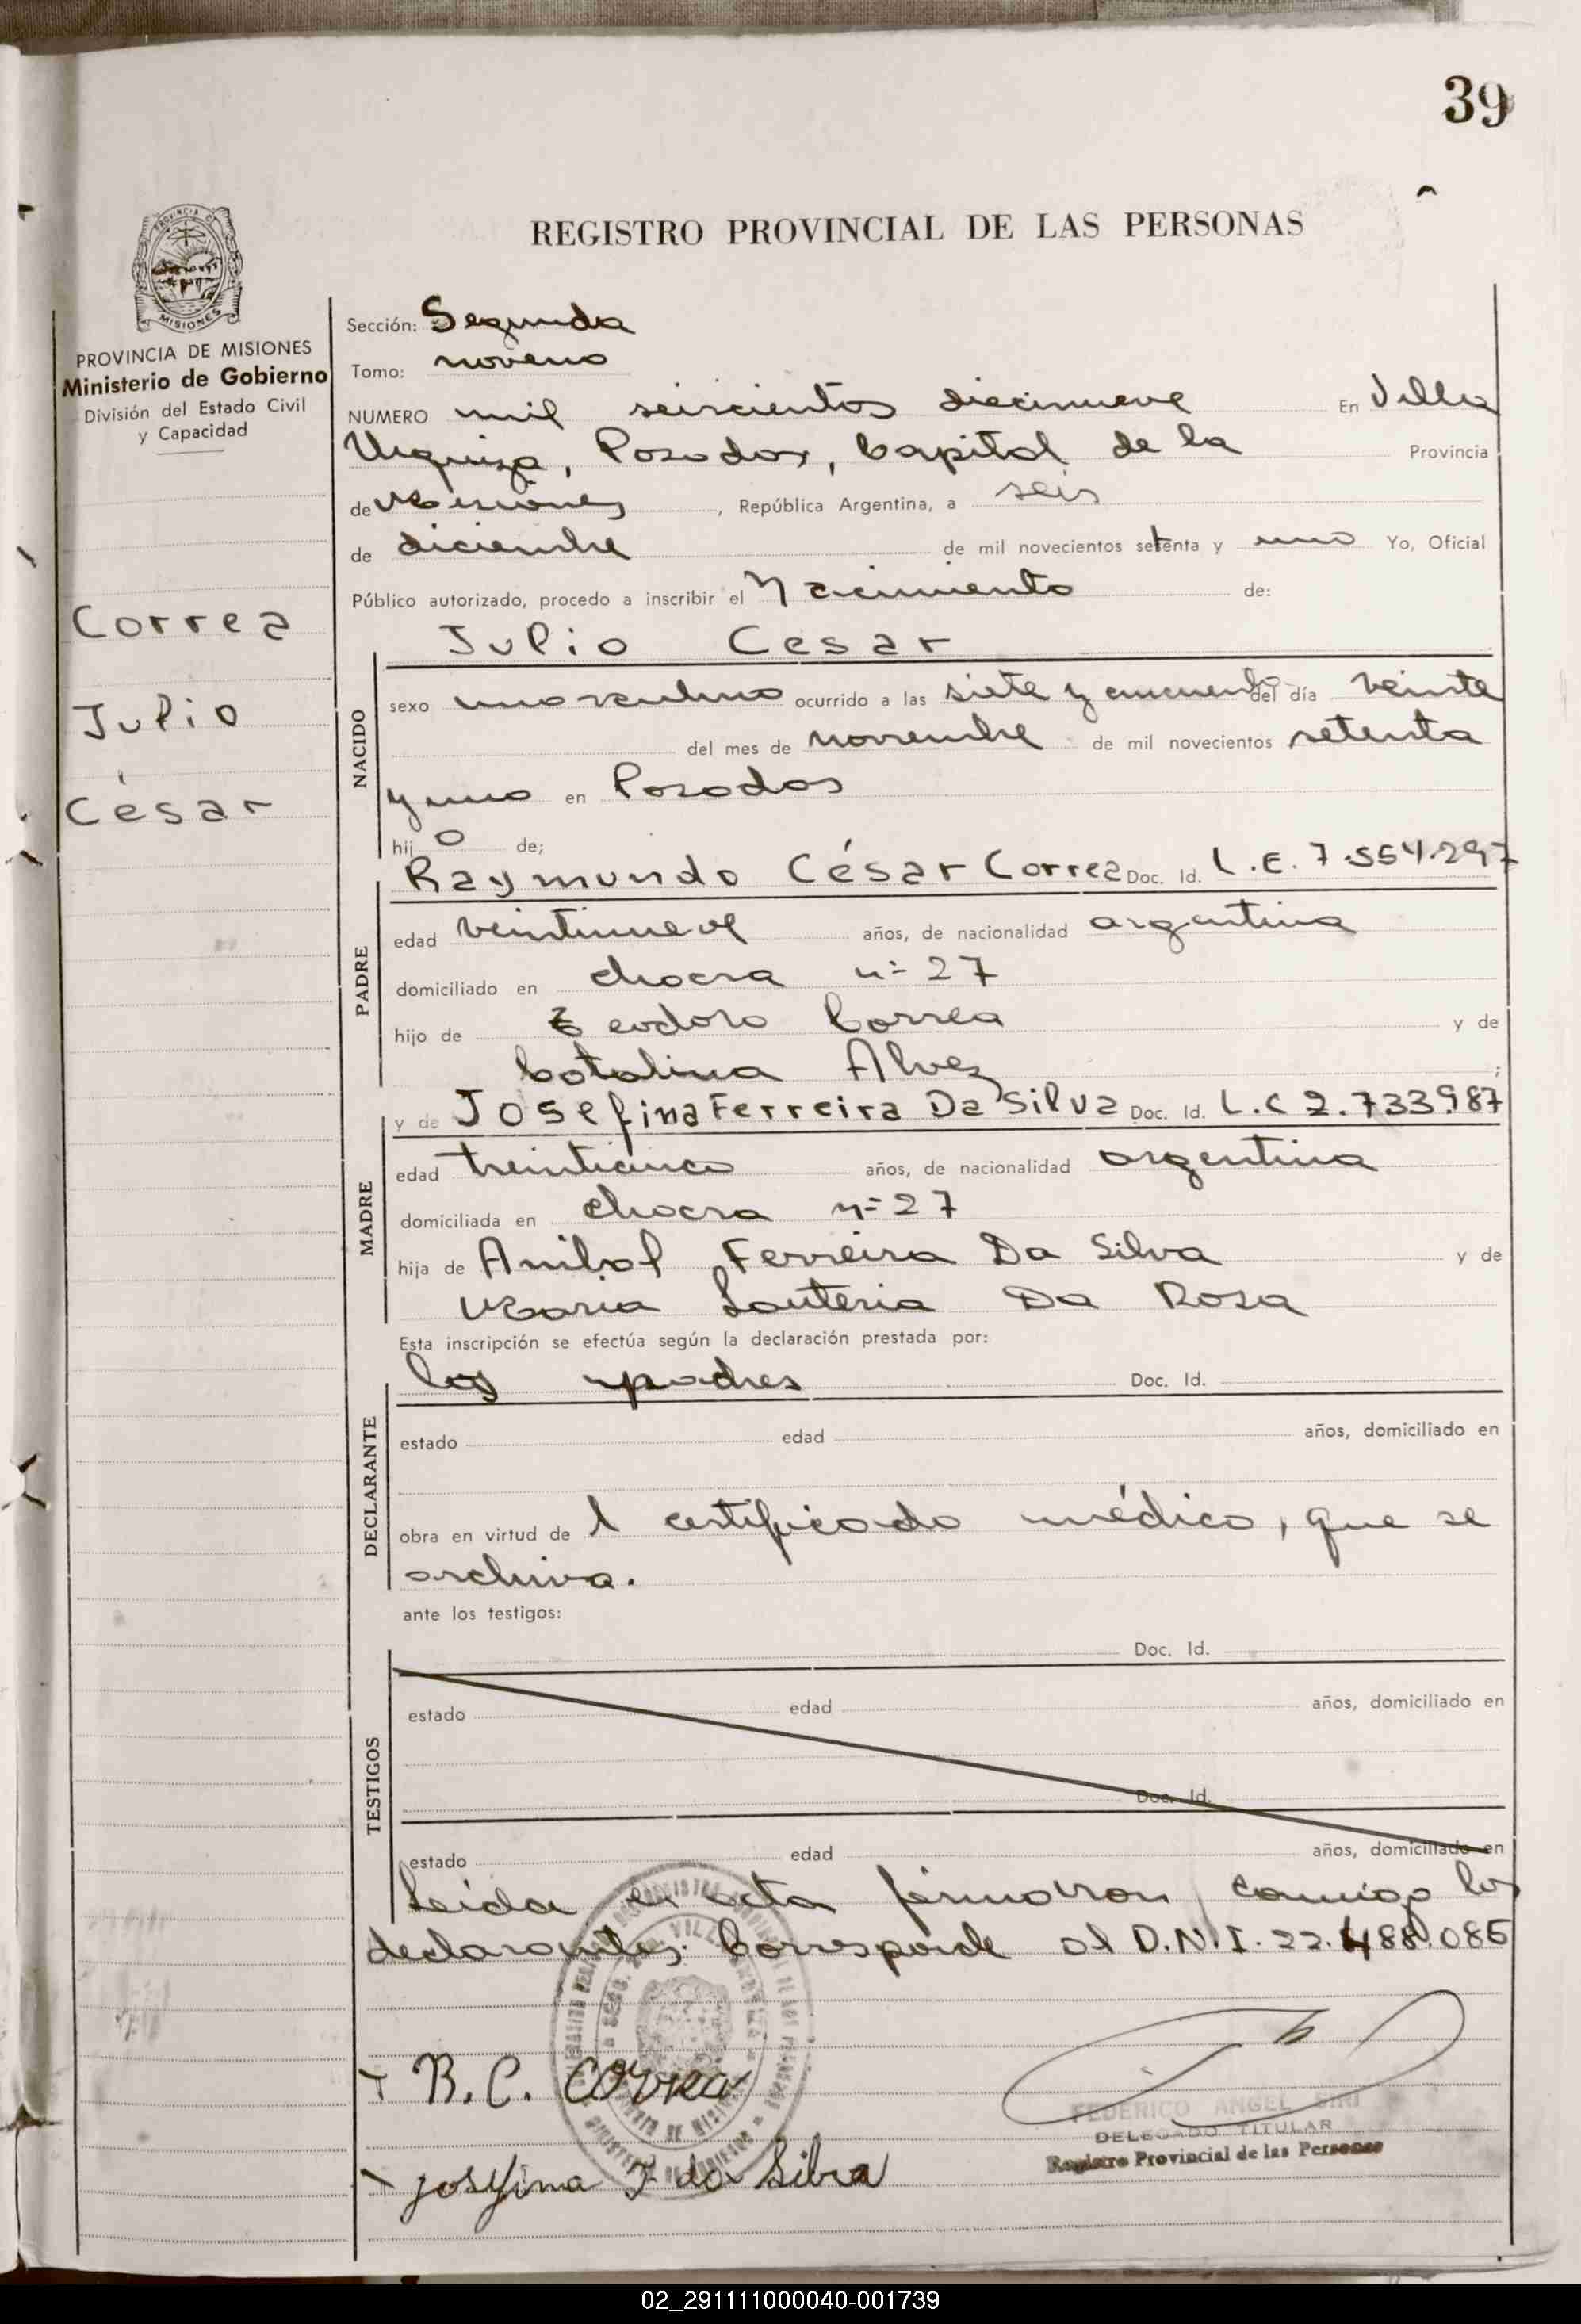 39
REGISTRO PROVINCIAL DE LAS PERSONAS
MISIONES
PROVINCIA DE MISIONES
Ministerio de Gobierno
División del Estado Civil
y Capacidad
Correa
Julio
César
Sección: Segunda
Tomo: noveno
NUMERO mil seiscientos diecinueve En Villa
Urquiza, Posadas, Capital de la Provincia
de Misiones, República Argentina, a seis
de diciembre de mil novecientos setenta y uno Yo, Oficial
Público autorizado, procedo a inscribir el Nacimiento de:
Julio Cesar
NACIDO
sexo masculino ocurrido a las siete y cincuenta del día veinte
del mes de noviembre de mil novecientos setenta
y uno en Posadas
hijo de;
Raymundo César Correa Doc. Id. L.E. 7.554.297
PADRE
edad veintinueve años, de nacionalidad argentina
domiciliado en chacra nº 27
hijo de Teodoro Correa y de
Catalina Alvez;
y de Josefina Ferreira Da Silva Doc. Id. L.C 2.733.987
MADRE
edad treinticinco años, de nacionalidad argentina
domiciliada en chacra nº 27
hija de Anibal Ferreira Da Silva y de
Maria Lauteria Da Rosa
Esta inscripción se efectúa según la declaración prestada por:
los padres Doc. Id.
DECLARANTE
estado edad años, domiciliado en
obra en virtud de l certificado médico, que se
archiva.
ante los testigos:
Doc. Id.
TESTIGOS
estado edad años, domiciliado en
Doc. Id.
estado edad años, domiciliado en
Leida el acta firmaron conmigo los
declarantes. Corresponde al D.N.I. 22.488.085
R.C. Correa
FEDERICO ANGEL SIRI
DELEGADO TITULAR
Registro Provincial de las Personas
Josefina F da Silva
02_291111000040-001739